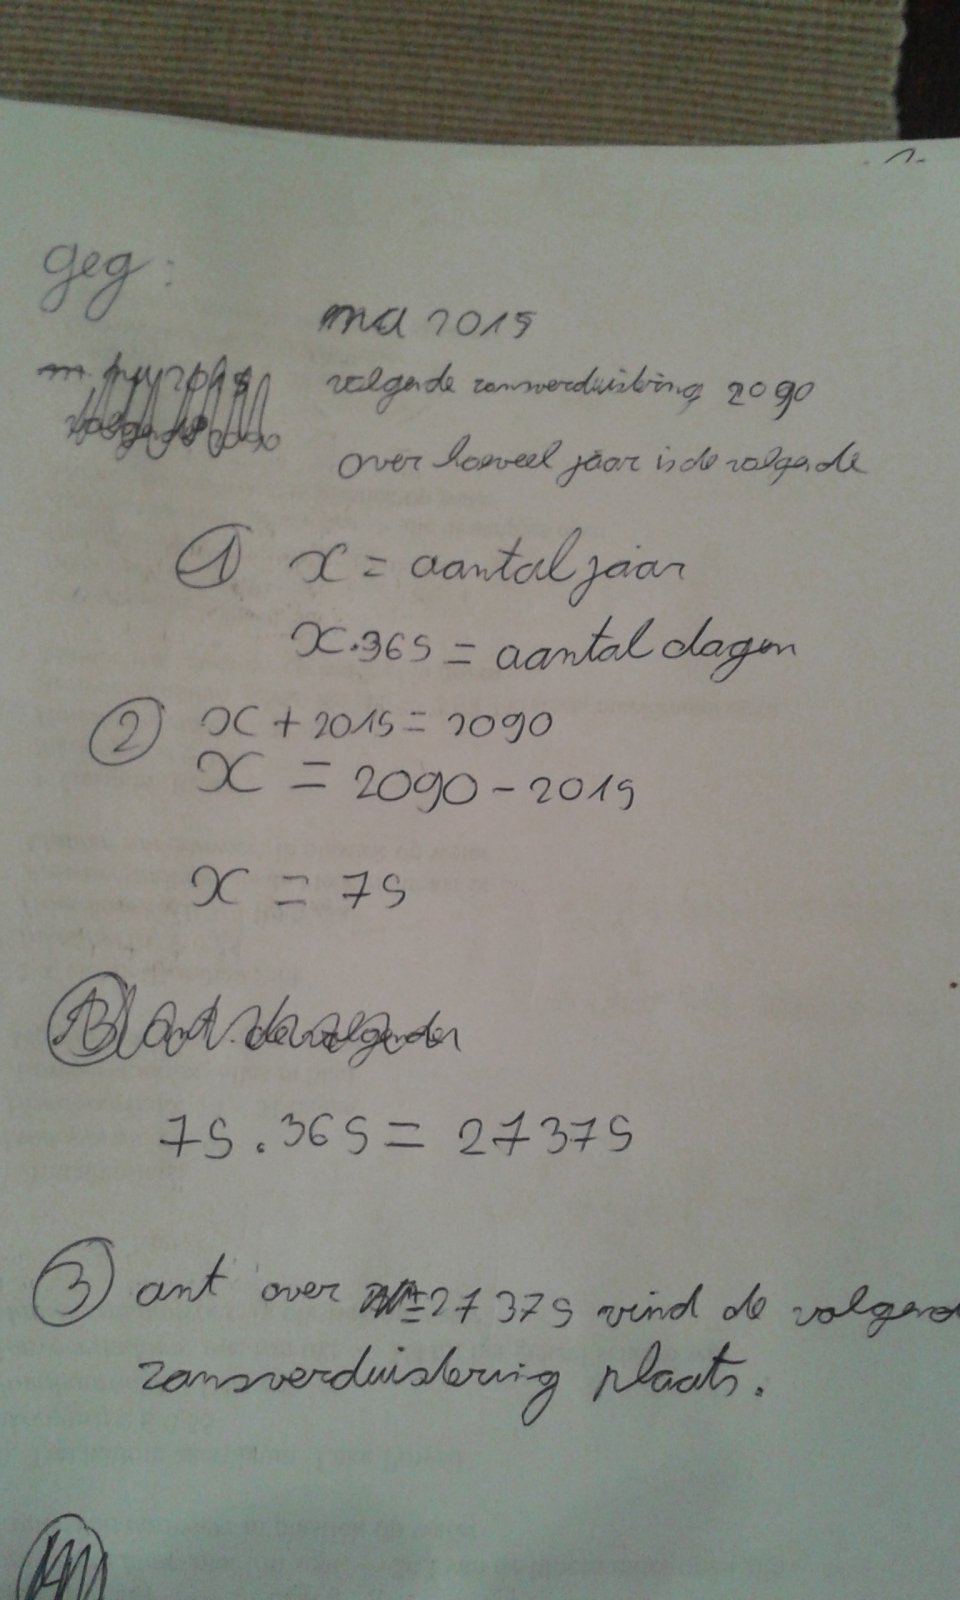 1.
geg:
ma 2015
volgende zonsverduistering 2090
over hoeveel jaar is de volgende
1 x = aantal jaar
x.365 = aantal dagen
2 x + 2015 = 2090
x = 2090 - 2015
x = 75
ant. de volgende
75.365 = 27375
3 ant over 27375 vind de volgend
zonsverduistering plaats.